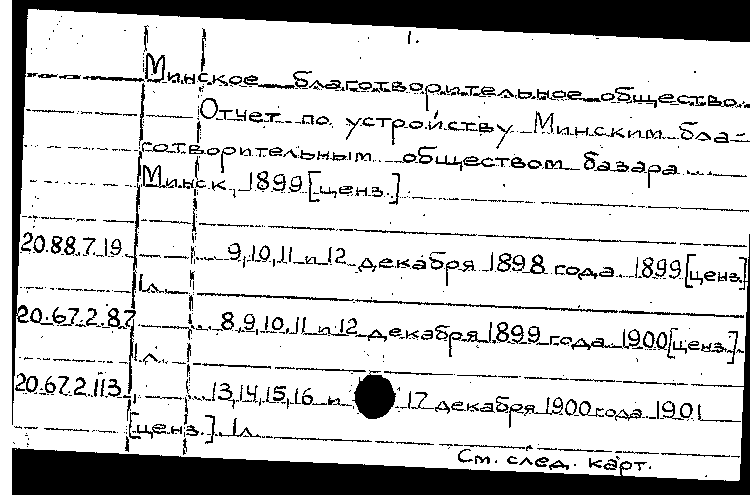 1.
Минское благотворительное общество.
Отчет по устройству Минским бла-
готворительным обществом базара...
Минск, 1899 [ценз.]
20.88.7.19 9,10,11 и 12 декабря 1898 года. 1899 [ценз]
1л.
20.67.2.87 ... 8,9,10,11 и 12 декабря 1899 года. 1900 [ценз.].
1л.
20.67.2.113 ... 13,14,15,16 и 17 декабря 1900 года 1901
[ценз.]. 1л.
См. след. карт.